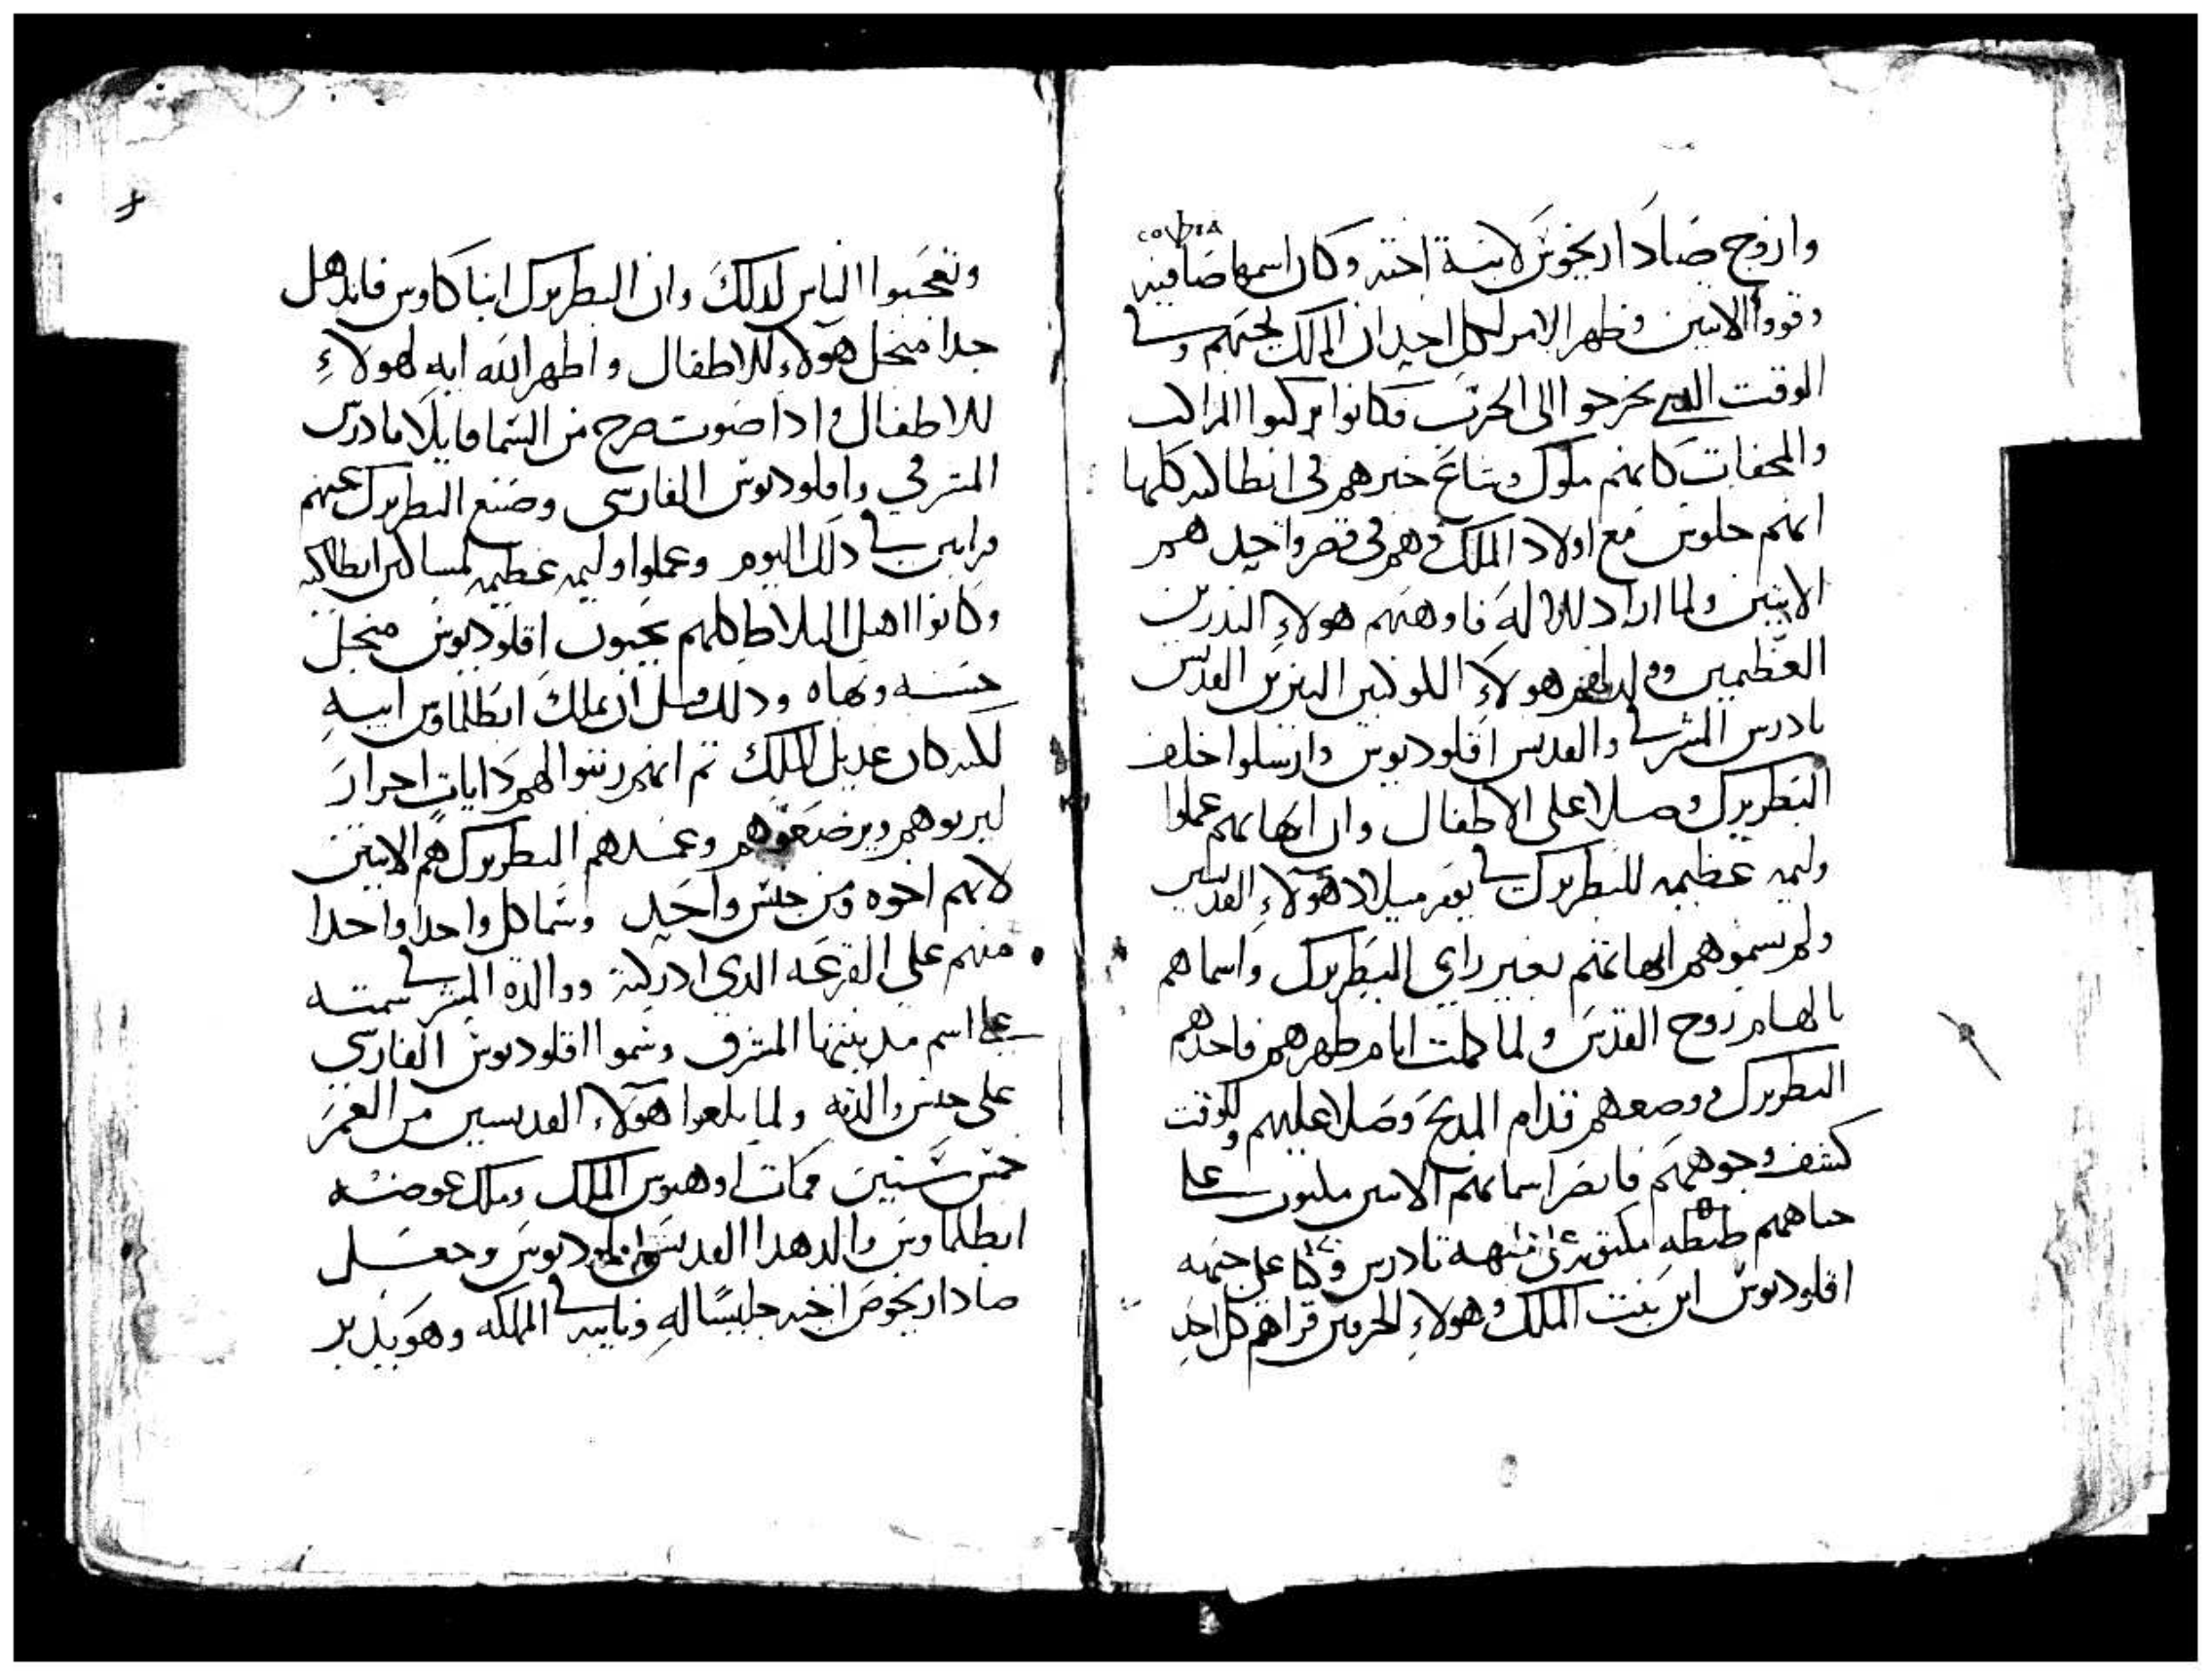 COVΦIA
وازوج صاداريخوس لابنة اخته وكان اسمها صافيه
وقووا الاتنين وظهر الامر لكل احد ان الملك يحبهم وفي
الوقت الدي يخرجوا الى الحرب فكانوا يركبوا المراكب
والمحفات كانهم ملوك وشاع خبرهم في انطاكيه كلها
انهم جلوس مع اولاد الملك وهم في قصر واحد هم
الاتنين ولما اراد الاله فاوهبهم هولاء البدرين
العظمين هولاء الكوكبين النيرين القديس
تادرس المشرقي والقديس اقلوديوس وارسلوا خلف
البطريرك وصلا على الاطفال وان ابهاتهم عملوا
وليمه عظيمه للبطريرك في يوم ميلاد هولاء القديسين
ولم يسموهم ابهاتهم بغير راي البطريرك واسماهم
بالهام روح القدس ولما كملت ايام طهرهم فاخدهم
البطريرك ووضعهم قدام المدبح وصلا عليهم وللوقت
كشف وجوههم فابصر اسمايهم الاتنين مكتوب على
جباههم تادرس وكا على جبهة
اقلوديوس ابن بنت الملك وهولاء الحرفين قراهم كل احد
وتعجبوا الناس لدلك وان البطريرك انبا كاوس فاندهل
جدا منجل هولاء الاطفال واظهر الله ايه لهولاء
الاطفال وادا صوت خرج من السما قايلا تادرس
المشرقي واقلوديوس الفارسي وصنع البطريرك عنهم
قرابين في دلك اليوم وعملوا وليمه عظيمه لمساكين انطاكيه
وكانوا اهل البلاط كلهم يحبون اقلوديوس منجل
حسنه وبهاه ودلك قبل ان يملك ابطلماوس ابيه
لكنه كان عديل الملك تم انهم رتبوا لهم دايات احرار
ليربوهم ويرضعوهم وعمدهم البطريرك هم الاتنين
لانهم اخوه ومن جنس واحد وسما كل واحدا واحدا
منهم على القرعه الدي ادركته ووالدة المشرقي سمته
على اسم مدينتها المشرق وسموا اقلوديوس الفارسي
على جنس والدته ولما بلغوا هولاء القديسين من العمر
خمس سنين فمات اوهيوس الملك وملك عوضه
ابطلماوس والد هدا القديس اقلوديوس وجعل
صاداريخوس اخيه جليسا له ونايبه في المملكه وهو يدبر